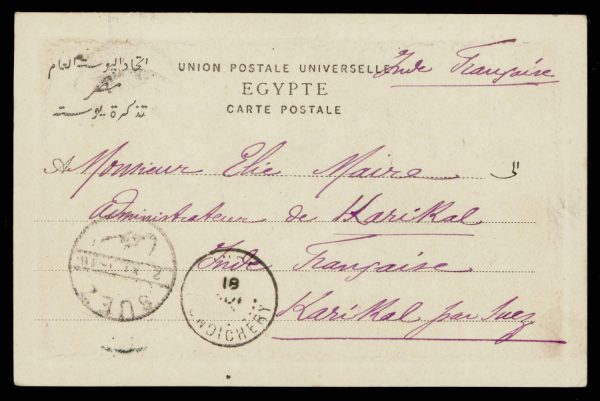 اتحاد البوستة العام
مصر
تذكرة بوستة
UNION POSTALE UNIVERSELLE
EGYPTE
CARTE POSTALE
Inde Française
A Monsieur Elie Maire الى
Administrateur de Karikal
Inde Française
Karikal par Suez
SUEZ
18
PONDICHERY